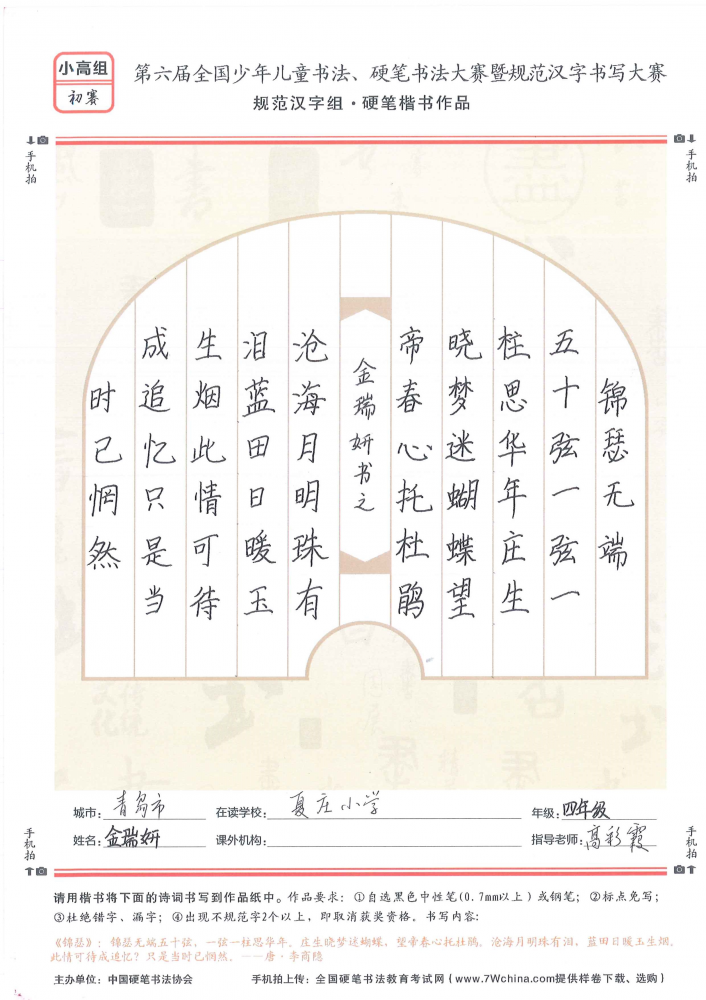 小高组
初赛
第六届全国少年儿童书法、硬笔书法大赛暨规范汉字书写大赛
规范汉字组·硬笔楷书作品
手机拍
手机拍
锦瑟无端
五十弦一弦一
柱思华年庄生
晓梦迷蝴蝶望
帝春心托杜鹃
金瑞妍书之
沧海月明珠有
泪蓝田日暖玉
生烟此情可待
成追忆只是当
时已惘然
城市：青岛市
在读学校：夏庄小学
年级：四年级
姓名：金瑞妍
课外机构：
指导老师：高彩霞
手机拍
手机拍
请用楷书将下面的诗词书写到作品纸中。作品要求：①自选黑色中性笔(0.7mm以上)或钢笔；②标点免写；
③杜绝错字、漏字；④出现不规范字2个以上，即取消获奖资格。书写内容：
《锦瑟》：锦瑟无端五十弦，一弦一柱思华年。庄生晓梦迷蝴蝶，望帝春心托杜鹃。沧海月明珠有泪，蓝田日暖玉生烟。
此情可待成追忆？只是当时已惘然。——唐·李商隐
主办单位：中国硬笔书法协会
手机拍上传：全国硬笔书法教育考试网（www.7Wchina.com提供样卷下载、选购）